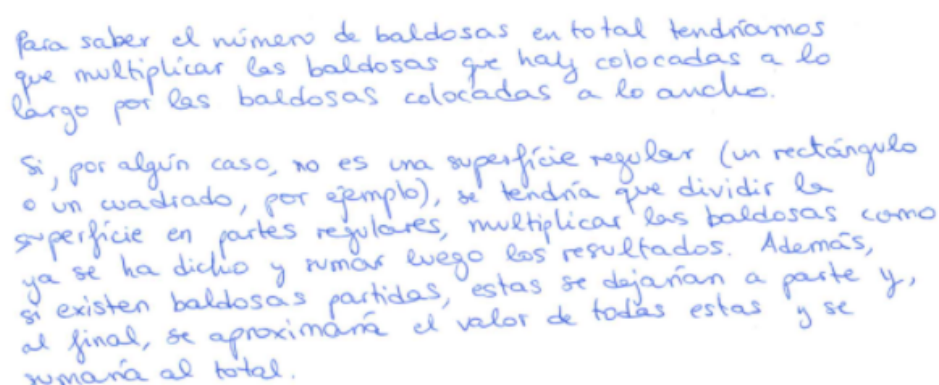 Para saber el número de baldosas en total tendríamos
que multiplicar las baldosas que haly colocadas a lo
largo por las baldosas colocadas a lo ancho.
Si, por algún caso, no es una superfície regular (un rectángulo
o un cuadrado, por ejemplo), se tendría que dividir la
superfície en partes regulares, multiplicar las baldosas como
ya se ha dicho y sumar luego los resultados. Además,
si existen baldosas partidas, estas se dejarían a parte y,
al final, se aproximaría el valor de todas estas y se
sumaría al total.